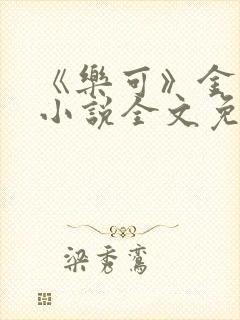 《樂可》金
小說全文免
梁秀鸞